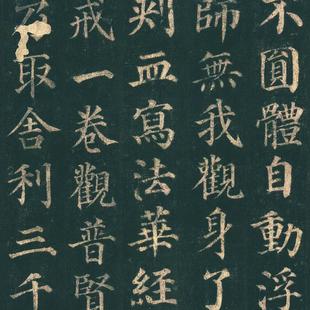 不圓體自動浮
師無我觀身了
刺血寫法華經
戒一卷觀普賢
取舍利三千